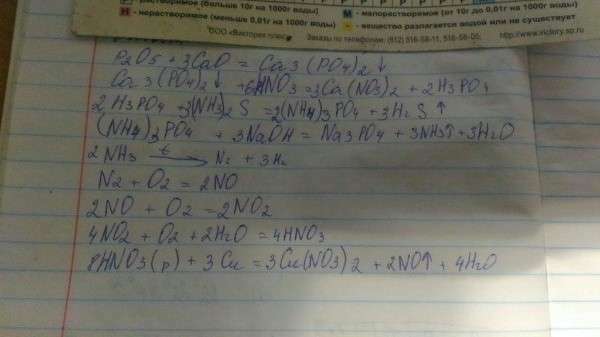 растворимое (больше 10г на 1000г воды)
Н - нерастворимое (меньше 0,01г на 1000г воды)
М - малорастворимое (от 10г до 0,01г на 1000г воды)
– - вещество разлагается водой или не существует
ООО «Виктория плюс» Заказы по телефонам: (812) 516-58-11, 516-58- http://www.victory.sp.ru
P2O5 + 3CaO = Ca3(PO4)2↓
Ca3(PO4)2↓ + 6HNO3 = 3Ca(NO3)2 + 2H3PO4
2H3PO4 + 3(NH4)2S = 2(NH4)3PO4 + 3H2S↑
(NH4)3PO4 + 3NaOH = Na3PO4 + 3NH3↑ + 3H2O
2NH3 t→ N2 + 3H2
N2 + O2 = 2NO
2NO + O2 = 2NO2
4NO2 + O2 + 2H2O = 4HNO3
8HNO3(р) + 3Cu = 3Cu(NO3)2 + 2NO↑ + 4H2O